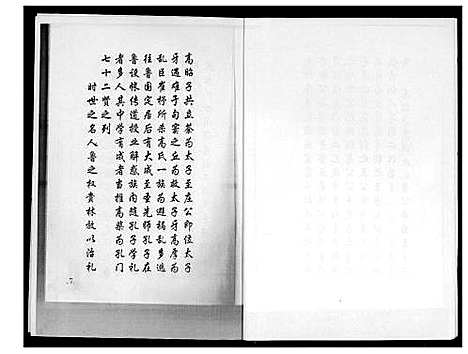 高昭子共立荼为太子至庄公即位太子
牙遇难于句窦之丘为救太子牙高厚为
乱臣崔杼所杀高氏一族为避祸乱多逃
往鲁国定居后有大成至圣先师孔子在
鲁设帐传道授业解惑族内随孔子学礼
者多人其中学有成者当推高柴为孔门
七十二贤之列
时世之名人鲁之权贵林放以治礼
7